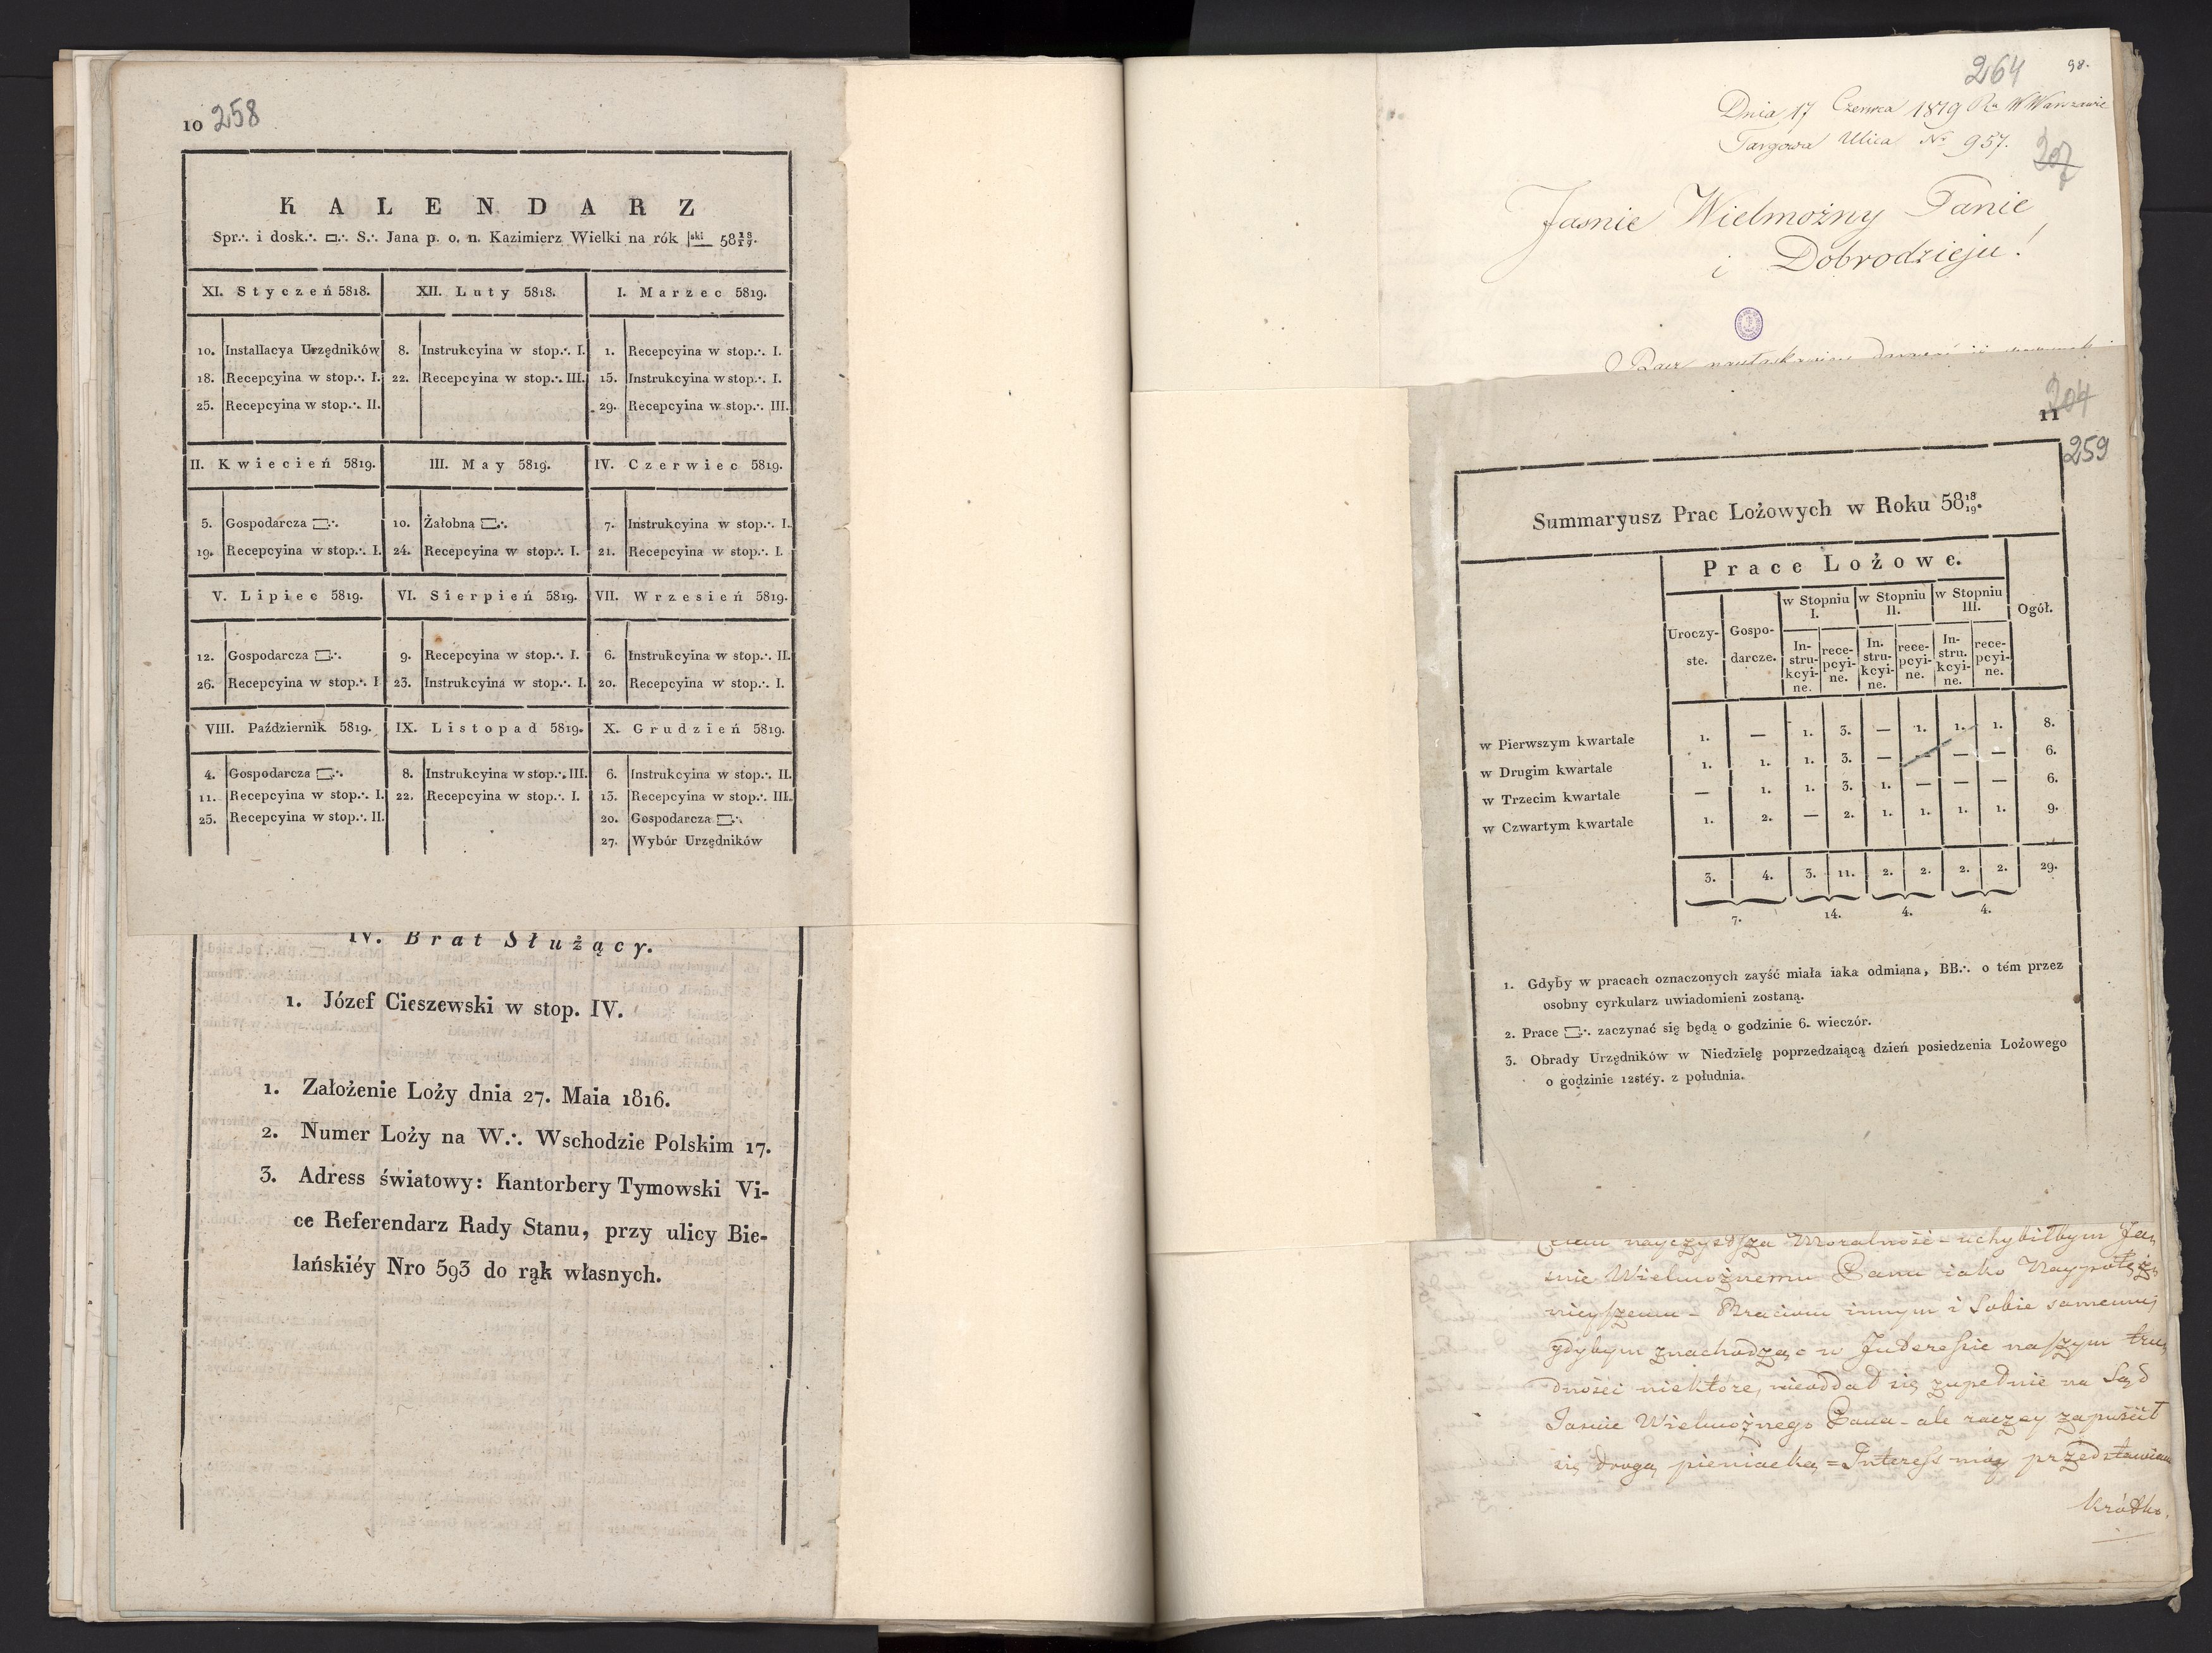 10 258
KALENDARZ
Spr.·. i dosk.·. ▭.·. S.·. Jana p. o. n. Kazimierz Wielki na rók |ski 58 18/19.
XI. Styczeń 5818. XII. Luty 5818. I. Marzec 5819.
10. Installacya Urzędników 8. Instrukcyina w stop.·. I. 1. Recepcyina w stop.·. I.
18. Recepcyina w stop.·. I. 22. Recepcyina w stop.·. III. 15. Instrukcyina w stop.·. I.
25. Recepcyina w stop.·. II. 29. Recepcyina w stop.·. III.
II. Kwiecień 5819. III. May 5819. IV. Czerwiec 5819.
5. Gospodarcza ▭.·. 10. Żałobna ▭.·. 7. Instrukcyina w stop.·. I.
19. Recepcyina w stop.·. I. 24. Recepcyina w stop.·. I. 21. Recepcyina w stop.·. I.
V. Lipiec 5819. VI. Sierpień 5819. VII. Wrzesień 5819.
12. Gospodarcza ▭.·. 9. Recepcyina w stop.·. I. 6. Instrukcyina w stop.·. II.
26. Recepcyina w stop.·. I 23. Instrukcyina w stop.·. I. 20. Recepcyina w stop.·. I.
VIII. Październik 5819. IX. Listopad 5819. X. Grudzień 5819.
4. Gospodarcza ▭.·. 8. Instrukcyina w stop.·. III. 6. Instrukcyina w stop.·. II.
11. Recepcyina w stop.·. I. 22. Recepcyina w stop.·. I. 13. Recepcyina w stop.·. III.
25. Recepcyina w stop.·. II. 20. Gospodarcza ▭.·.
27. Wybór Urzędników
IV. Brat Służący.
1. Józef Cieszewski w stop. IV.
1. Założenie Loży dnia 27. Maia 1816.
2. Numer Loży na W.·. Wschodzie Polskim 17.
3. Adress światowy: Kantorbery Tymowski Vi-
ce Referendarz Rady Stanu, przy ulicy Bie-
lańskiéy Nro 593 do rąk własnych.
264 98.
Dnia 17 Czerwca 1819 Ru W Warszawie
Targowa Ulica No 957.
207
Jaśnie Wielmożny Panie
i Dobrodzieju!
204
11
259
Summaryusz Prac Lożowych w Roku 58 18/19.
Prace Lożowe.
Uroczy-ste. Gospo-darcze. w Stopniu I. w Stopniu II. w Stopniu III. Ogół.
In-stru-kcyi-ne. rece-pcyi-ne. In.stru-kcyi-ne. rece-pcyi-ne. In-stru.kcyi-ne. rece-pcyi-ne.
w Pierwszym kwartale 1. — 1. 3. — 1. 1. 1. 8.
w Drugim kwartale 1. 1. 1. 3. — — — — 6.
w Trzecim kwartale — 1. 1. 3. 1. — — — 6.
w Czwartym kwartale 1. 2. — 2. 1. 1. 1. 1. 9.
3. 4. 3. 11. 2. 2. 2. 2. 29.
7. 14. 4. 4.
1. Gdyby w pracach oznaczonych zayść miała iaka odmiana, BB.·. o tém przez
osobny cyrkularz uwiadomieni zostaną.
2. Prace ▭.·. zaczynać się będą o godzinie 6. wieczór.
3. Obrady Urzędników w Niedzielę poprzedzaiącą dzień posiedzenia Lożowego
o godzinie 12stéy. z południa.
nayczystsza Moralność – uchybiłbym Jaś
nie Wielmożnemu Panu iako Naypotęż
nieyszemu – Braciom innym i Sobie samemu,
gdybym znachodząc w Interessie naszym tru,
dności niektóre, nieoddał się zupełnie na Sąd
Jaśnie Wielmożnego Pana – ale raczey zapuścił
się drogą pieniacką = Interess móy przedstawiam
krótko.